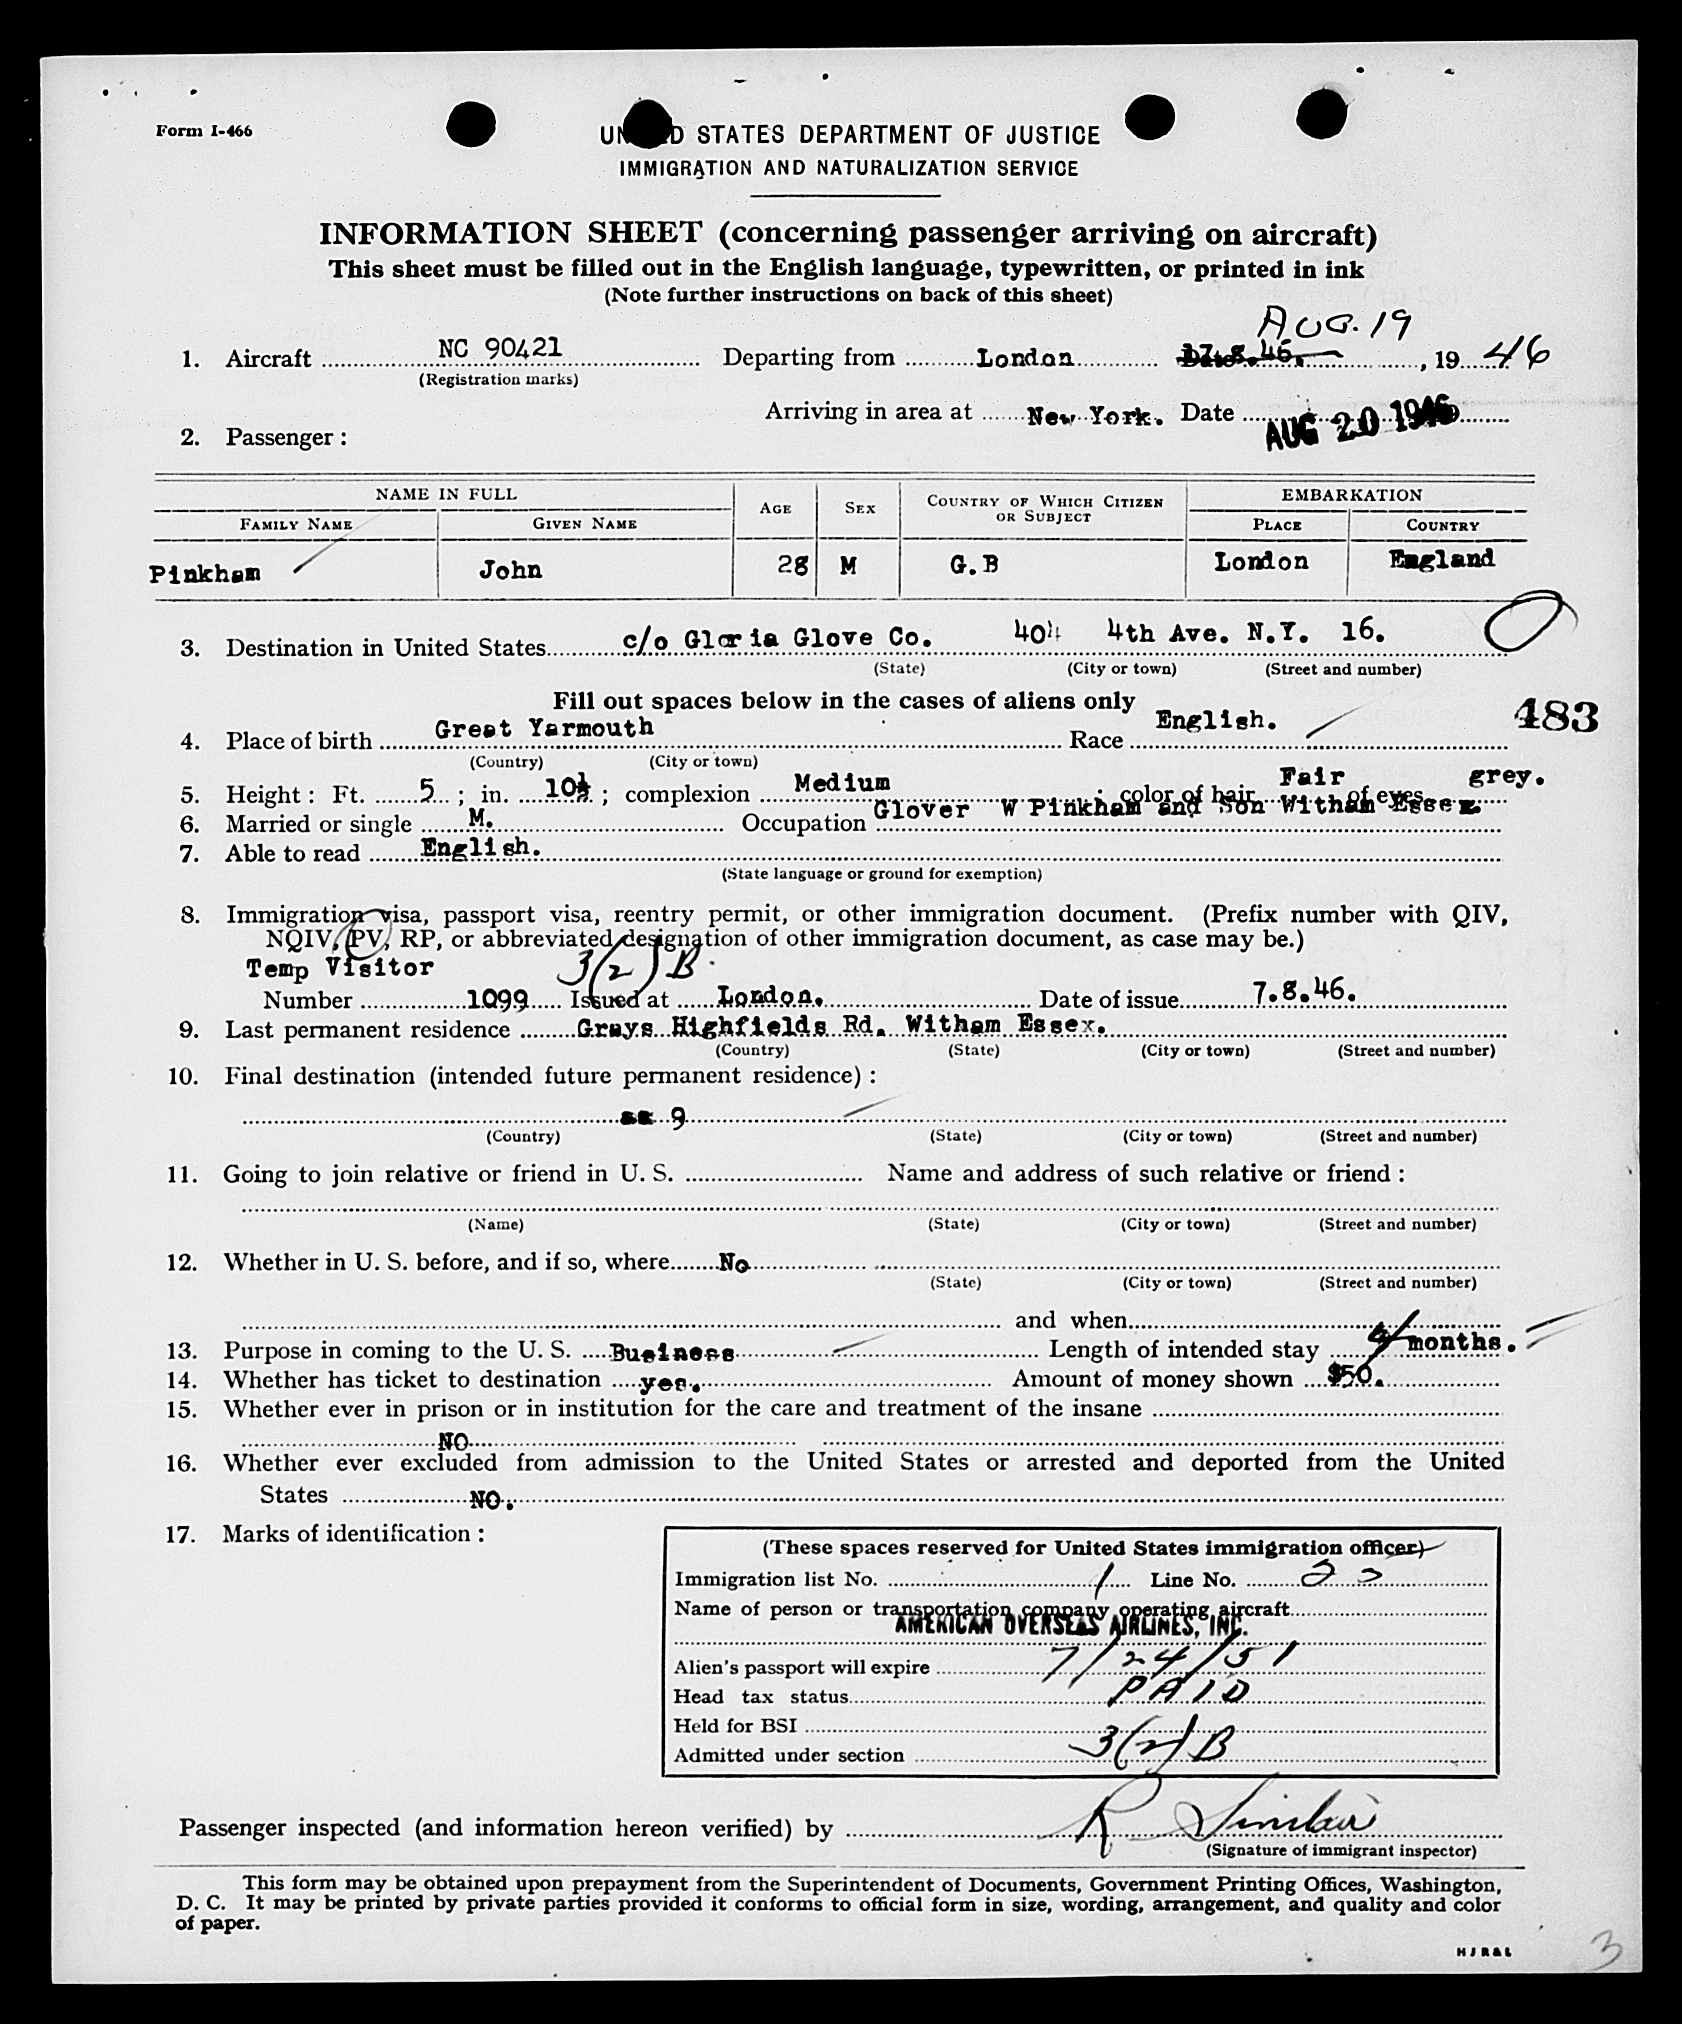 Form I-466
UNITED STATES DEPARTMENT OF JUSTICE
IMMIGRATION AND NATURALIZATION SERVICE
INFORMATION SHEET (concerning passenger arriving on aircraft)
This sheet must be filled out in the English language, typewritten, or printed in ink
(Note further instructions on back of this sheet)
AUG. 19
1. Aircraft NC 90421 Departing from London 17.8.46. , 19 46
(Registration marks)
Arriving in area at New York. Date AUG 20 1946
2. Passenger :
NAME IN FULL AGE SEX COUNTRY OF WHICH CITIZEN OR SUBJECT EMBARKATION
FAMILY NAME GIVEN NAME PLACE COUNTRY
Pinkham John 28 M G.B London England
3. Destination in United States c/o Gloria Glove Co. 404 4th Ave. N.Y. 16.
(State) (City or town) (Street and number)
Fill out spaces below in the cases of aliens only
483
4. Place of birth Great Yarmouth Race English.
(Country) (City or town)
5. Height : Ft. 5 ; in. 10½ ; complexion Medium ; color of hair Fair of eyes grey.
6. Married or single M. Occupation Glover W Pinkham and Son Witham Essex.
7. Able to read English.
(State language or ground for exemption)
8. Immigration visa, passport visa, reentry permit, or other immigration document. (Prefix number with QIV,
NQIV, PV, RP, or abbreviated designation of other immigration document, as case may be.)
Temp Visitor 3(2)B.
Number 1099 Issued at London. Date of issue 7.8.46.
9. Last permanent residence Grays Highfields Rd. Witham Essex.
(Country) (State) (City or town) (Street and number)
10. Final destination (intended future permanent residence) :
as 9
(Country) (State) (City or town) (Street and number)
11. Going to join relative or friend in U. S. Name and address of such relative or friend :
(Name) (State) (City or town) (Street and number)
12. Whether in U. S. before, and if so, where No
(State) (City or town) (Street and number)
and when
13. Purpose in coming to the U. S. Business Length of intended stay months.
14. Whether has ticket to destination yes. Amount of money shown $50.
15. Whether ever in prison or in institution for the care and treatment of the insane
NO
16. Whether ever excluded from admission to the United States or arrested and deported from the United
States NO.
17. Marks of identification :
(These spaces reserved for United States immigration officer)
Immigration list No. 1 Line No.
Name of person or transportation company operating aircraft
AMERICAN OVERSEAS AIRLINES, INC.
Alien's passport will expire 7/24/51
Head tax status PAID
Held for BSI
Admitted under section 3(2)B
Passenger inspected (and information hereon verified) by R Sinclair
(Signature of immigrant inspector)
This form may be obtained upon prepayment from the Superintendent of Documents, Government Printing Offices, Washington,
D. C. It may be printed by private parties provided it conforms to official form in size, wording, arrangement, and quality and color
of paper.
H J R & L
3